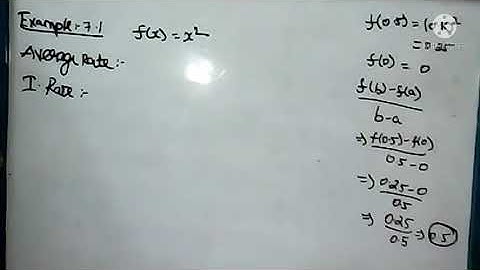 Example:-7.1
f(x) = x²
Average Rate:-
I. Rate:-
f(0.5) = (0.5)²
= 0.25
f(0) = 0
f(b)-f(a)
b-a
⇒ f(0.5)-f(0)
0.5-0
⇒ 0.25-0
0.5
⇒ 0.25
0.5 ⇒ 0.5